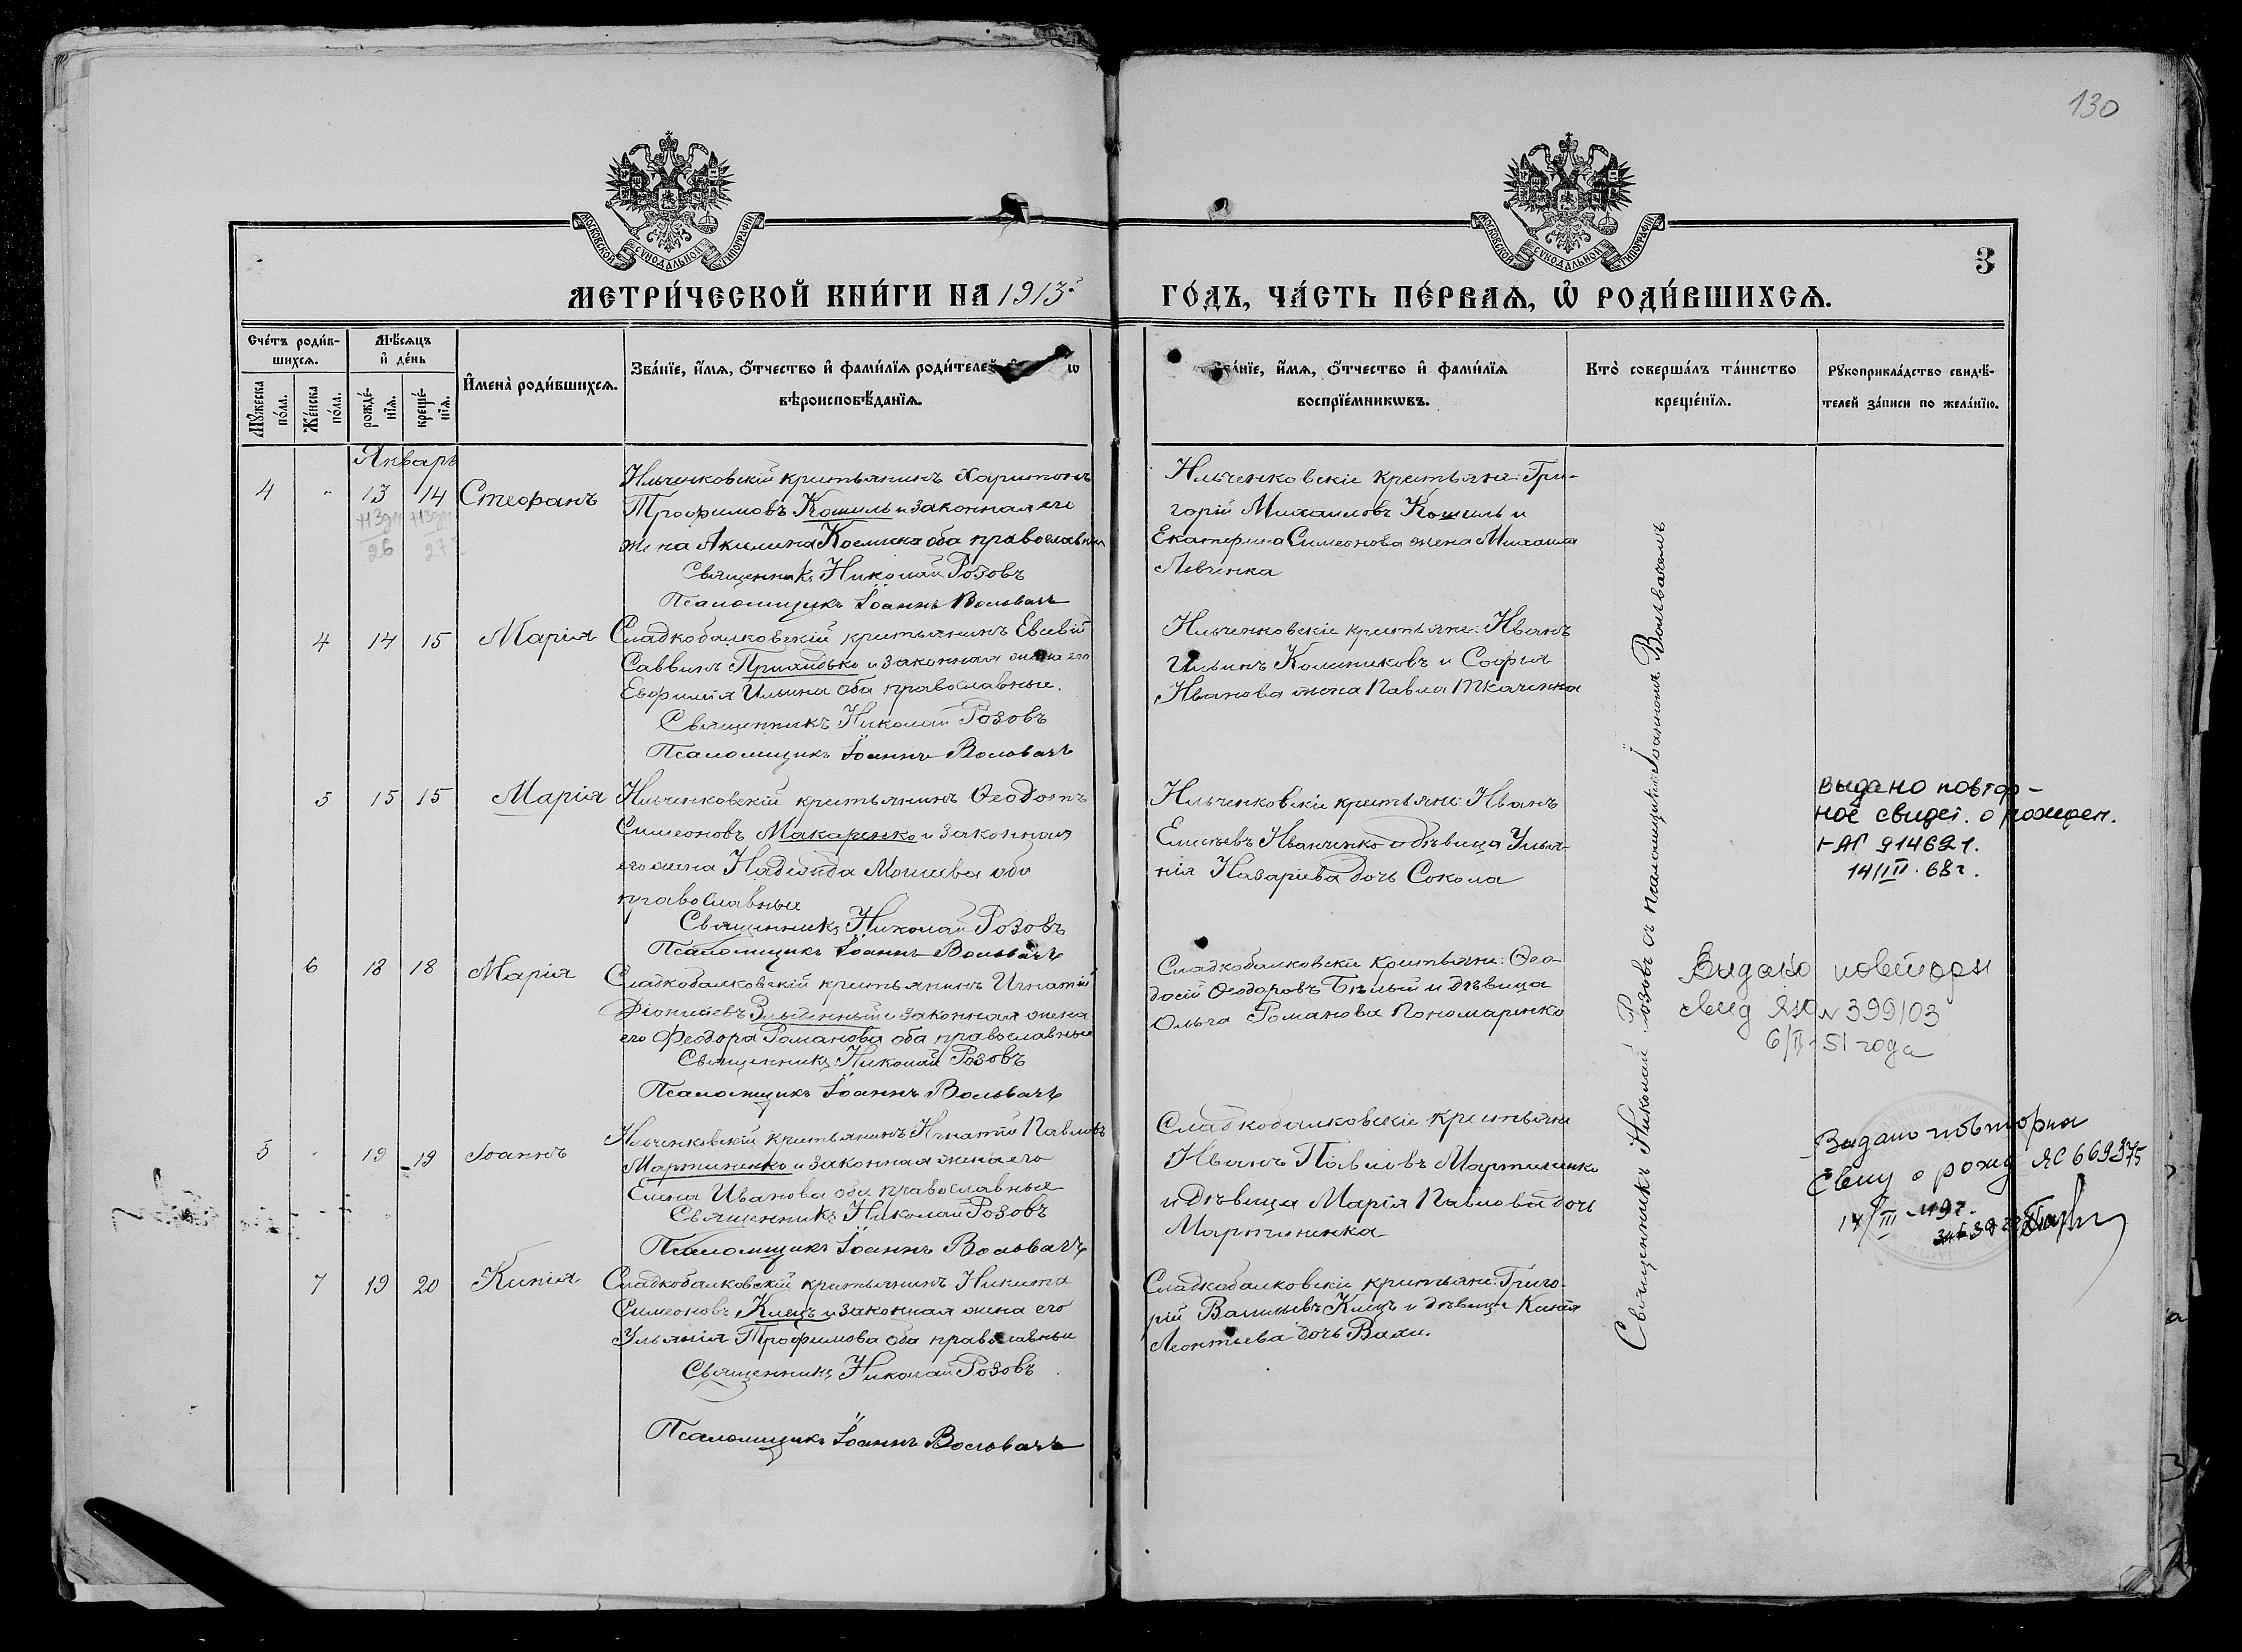 130
МОСКОВСКОЙ СѴНОДАЛЬНОЙ ТИПОГРАФІИ
МОСКОВСКОЙ СѴНОДАЛЬНОЙ ТИПОГРАФІИ
3
МЕТРИ́ЧЕСКОЙ КНИ́ГИ НА 1913
ГО́ДЪ, ЧА́СТЬ ПЕ́РВАѦ, Ѡ҆ РОДИ́ВШИХСѦ.
Сче́тъ роди́в-
шихсѧ.
Мꙋжеска по́ла.
Же́нска по́ла.
Мѣ́сѧцъ
и҆ де́нь
рожде́-нїѧ.
креще́-нїѧ.
И҆мена̀ роди́вшихсѧ.
Зва́нїе, и҆́мѧ, ѻ҆́тчество и҆ фами́лїѧ роди́телей
вѣроисповѣ́данїѧ.
Зва́нїе, и҆́мѧ, ѻ҆́тчество и҆ фами́лїѧ
воспрїе́мникѡвъ.
Кто̀ соверша́лъ та́инство
креще́нїѧ.
Рꙋкоприкла́дство свидѣ́-
телей за́писи по жела́нїю.
Январь
4 " 13 14 Стефанъ
26 27
Ильченковскій крестьянинъ Харитонъ
Трофимовъ Кошиль и законная его
жена Акилина Космина оба православные
Священникъ Николай Розовъ
Псаломщикъ Іоаннъ Вольвачъ
Ильченковскіе крестьяне: Гри-
горій Михаиловъ Кошиль и
Екатерина Симеонова жена Михаила
Левченка
4 14 15 Марія
Сладкобалковскій крестьянинъ Евсевій
Саввинъ Приходько и законная жена его
Евфимія Ильина оба православные.
Священникъ Николай Розовъ
Псаломщикъ Іоаннъ Вольвачъ
Ильченковскіе крестьяне: Иванъ
Ильинъ Колиниковъ и Софія
Иванова жена Павла Ткаченка
5 15 15 Марія
Ильченковскій крестьянинъ Ѳеодотъ
Симеоновъ Макаренко и законная
его жена Надежда Моисеева оба
православные
Священникъ Николай Розовъ
Псаломщикъ Іоаннъ Вольвачъ
Ильченковскіе крестьяне: Иванъ
Елисѣевъ Иванченко и дѣвица Улья-
нія Назаріева дочь Сокола
выдано повтор-
ное свидет. о рожден.
914621.
14/III. 68г.
6 18 18 Марія
Сладкобалковскій крестьянинъ Игнатій
Діонисіевъ и законная жена
его Феодора Романова оба православные
Священникъ Николай Розовъ
Псаломщикъ Іоаннъ Вольвачъ
Сладкобалковскіе крестьяне: Ѳео-
досій Ѳеодоровъ Бѣлый и дѣвица
Ольга Романова Пономаренко
Выдано повторн
свид ЯЮ № 399103
6/II 51 года
5 " 19 19 Іоаннъ
Ильченковскій крестьянинъ Игнатій Павловъ
Мартыненко и законная жена его
Елена Иванова оба православные
Священникъ Николай Розовъ
Псаломщикъ Іоаннъ Вольвачъ
Сладкобалковскіе крестьяне
Иванъ Павловъ Мартыненко
и дѣвица Марія Павлова дочь
Мартыненка
Видано повторна
о рожд ЯС 669375
14/III
7 19 20 Кипія
Сладкобалковскій крестьянинъ Никита
Симеоновъ Клецъ и законная жена его
Ульянія Трофимова оба православные
Священникъ Николай Розовъ
Псаломщикъ Іоаннъ Вольвачъ
Сладкобалковскіе крестьяне: Григо-
рій Васильевъ Клецъ и дѣвица
Леонтіева дочь
Священникъ Николай Розовъ съ псаломщикомъ Іоанномъ Вольвачомъ